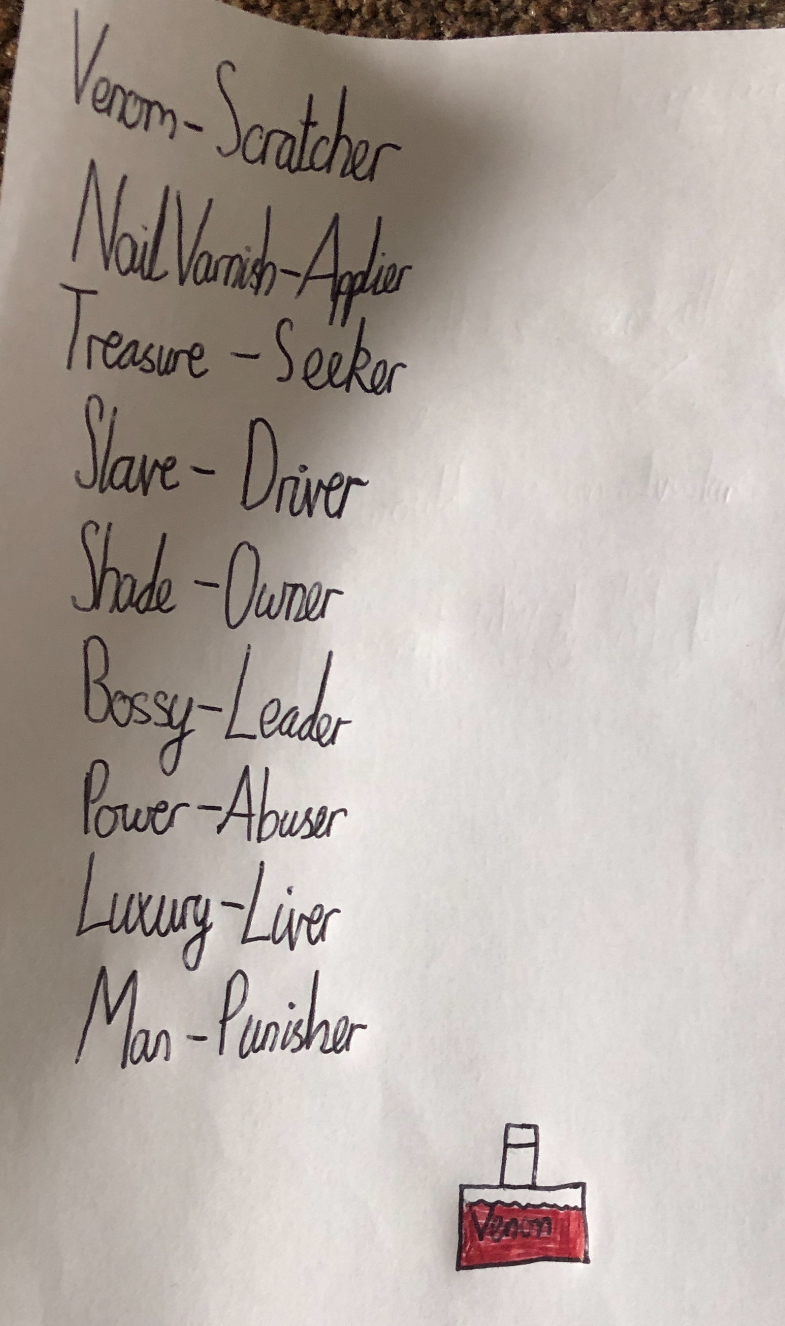 Venom-Scratcher
Nail Varnish-Applier
Treasure - Seeker
Slave - Driver
Shade - Owner
Bossy-Leader
Power-Abuser
Luxury-Liver
Man - Punisher
Venom